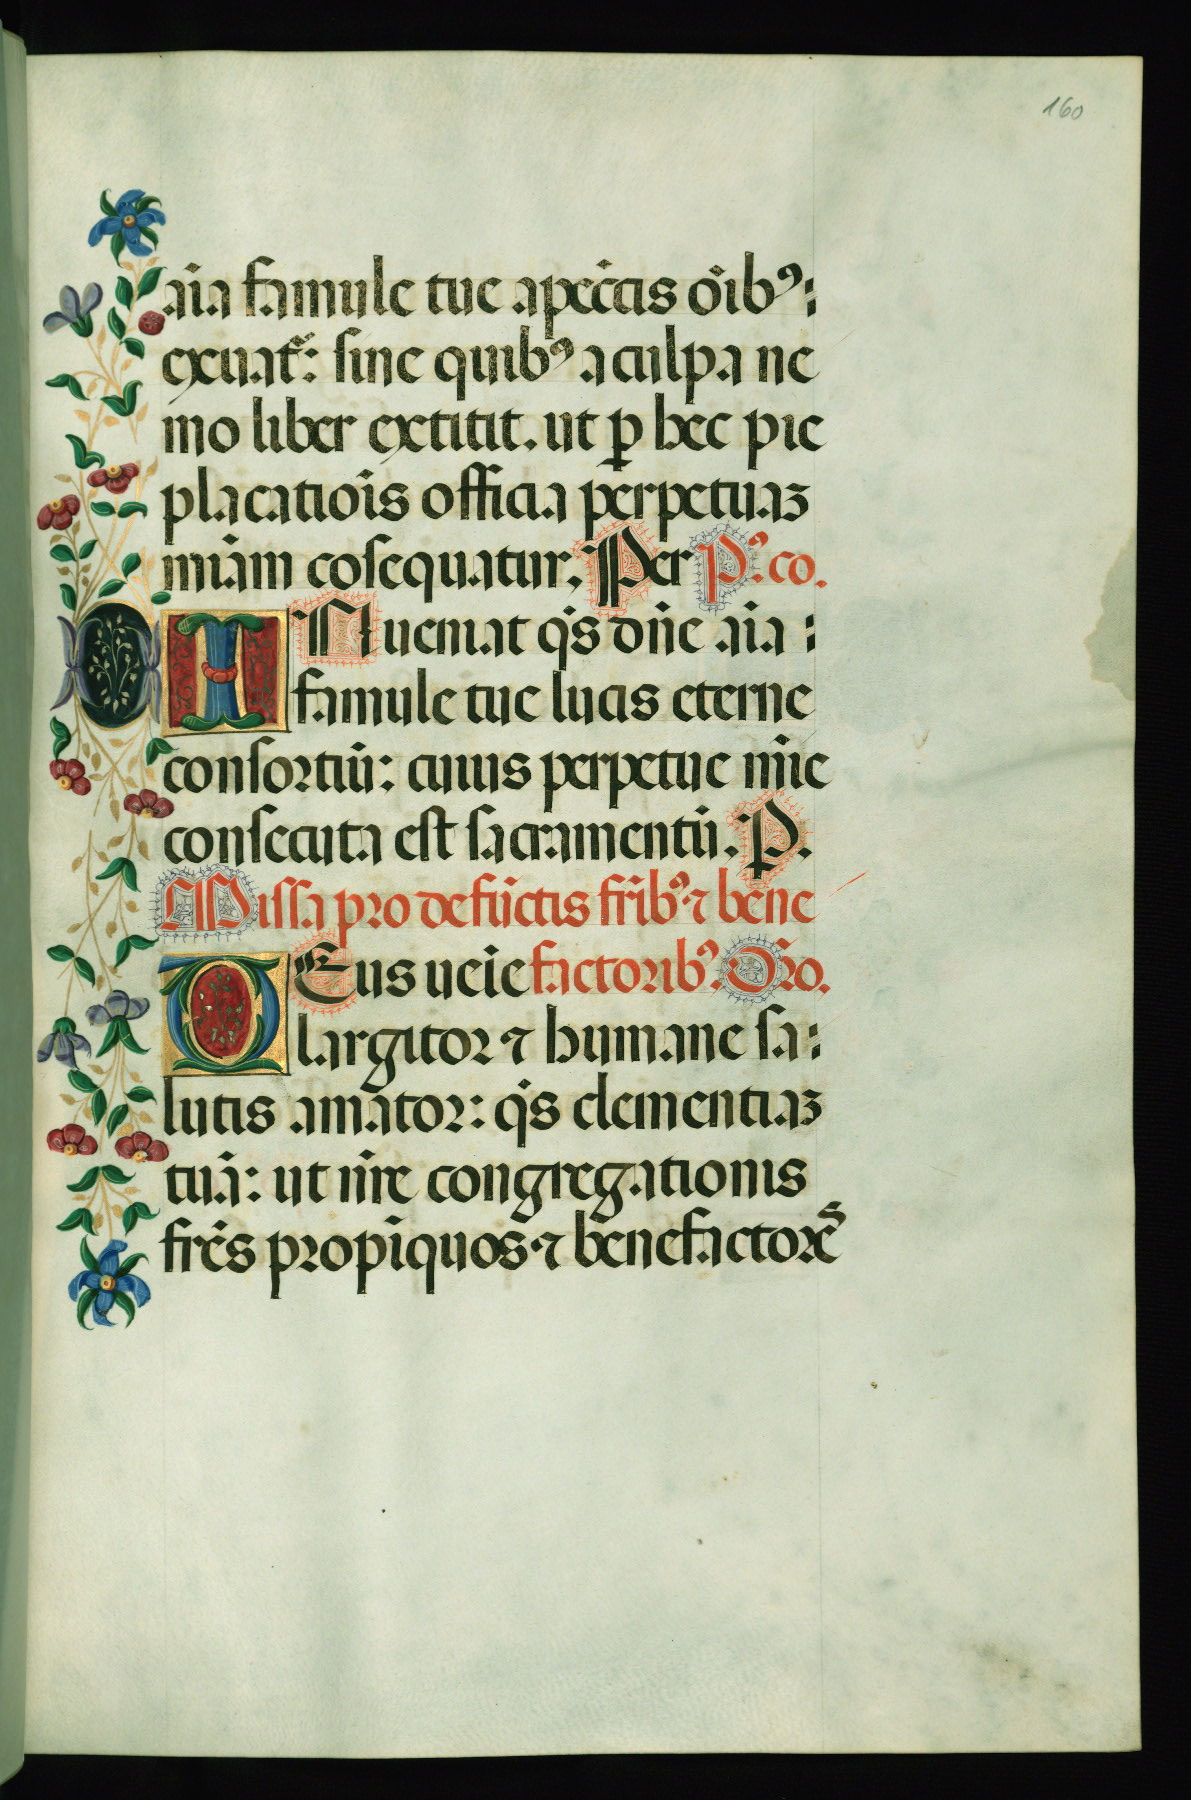 160
aīa famule tue a pec̄cis oīb⁹:
exuat᷑: sine quib⁹ a culpa ne
mo liber extitit. ut ꝑ hec pie
placatiōis officia perpetuaꝫ
miāṁ cōsequatur. Per P⁹: co.
INueniat q̄s dn̄e aīa :
famule tue lucis eterne
consortiū: cuius perpetue mīe
consecuta est sacramentū. P.
Missa pro defūctis fr̄ib⁹ ⁊ bene
DEus ueīe factorib⁹. Or̄o.
largitor ⁊ humane sa:
lutis amator: q̄s clementiaꝫ
tuā: ut nr̄e congregationis
fr̄es propīquos ⁊ benefactorēs